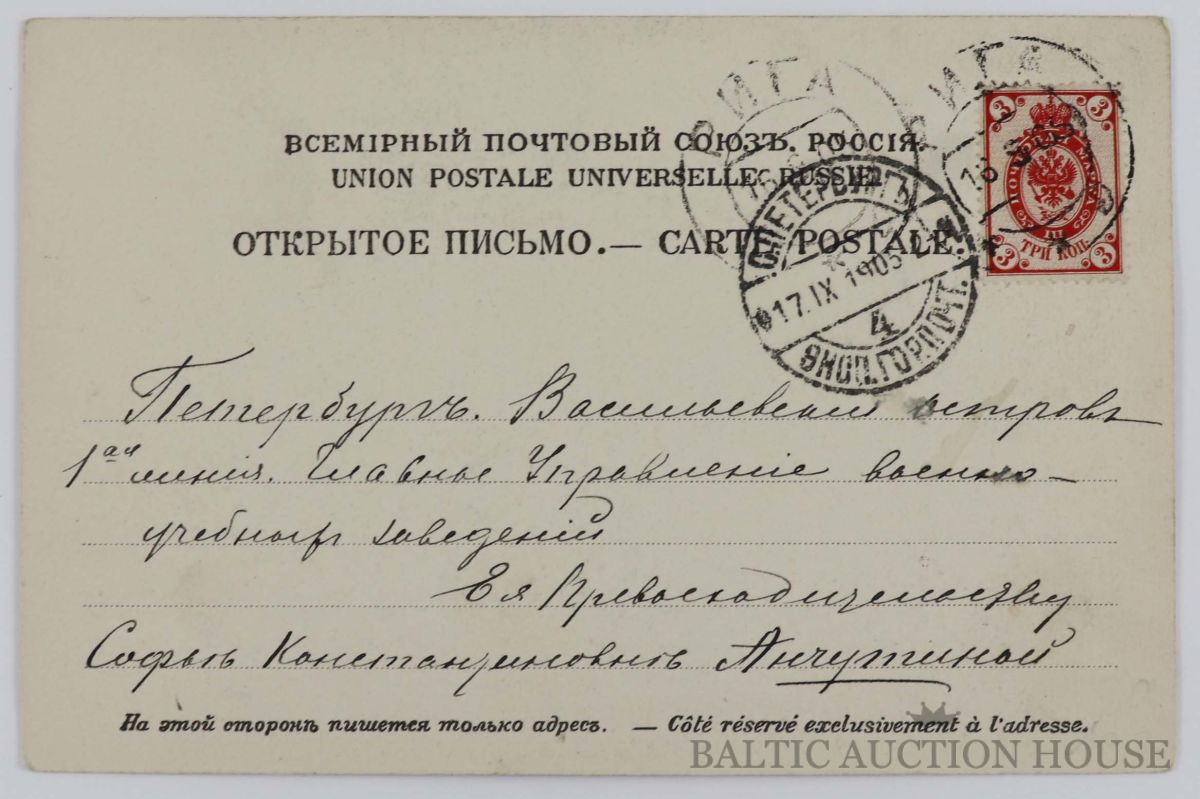 ВСЕМІРНЫЙ ПОЧТОВЫЙ СОЮЗЪ. РОССІЯ.
UNION POSTALE UNIVERSELLE. RUSSIE.
ОТКРЫТОЕ ПИСЬМО. — CARTE POSTALE.
РИГА
РИГА
18
3
3
ПОЧТОВАЯ МАРКА
III
ТРИ КОП.
3
3
С.ПЕТЕРБУРГЪ
17.IX 1905
4
ЭКСП.ГОР.ПОЧТ.
Петербургъ. Васильевскій островъ
1ая линія. Главное Управленіе военно-
учебныхъ заведеній
Ея Превосходительству
Софьѣ Константиновнѣ Анчутиной
На этой сторонѣ пишется только адресъ. — Côté réservé exclusivement à l'adresse.
BALTIC AUCTION HOUSE